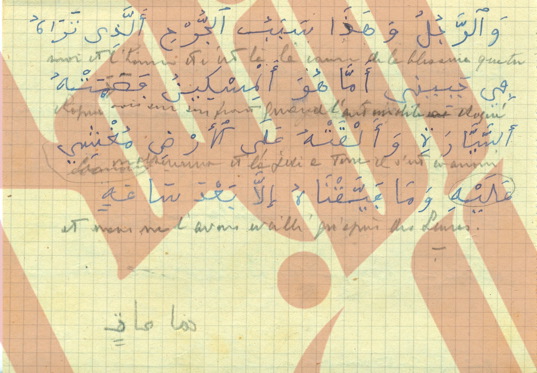 وَالرَّجُلُ وَهَذَا سَبَبُ الجُرْحِ أَلَّذِي تَرَاهُ
moi et l'homme et c'est là la cause de la blessure que tu
فِي جَبِينِي أَمَّا هُوَ الْمِسْكِينُ
vois sur mon front quand l'automobile
السَّيَّارَةِ وَأَلْقَتْهُ عَلَى الأَرْضِ مُغْشِي
et la jeté a terre il s'est évanoui
عَلَيْهِ وَمَا فَيَّقْنَاهُ إِلاَّ بَعْدَ سَاعَةٍ
et nous ne l'avons éveillé qu'après des heures.